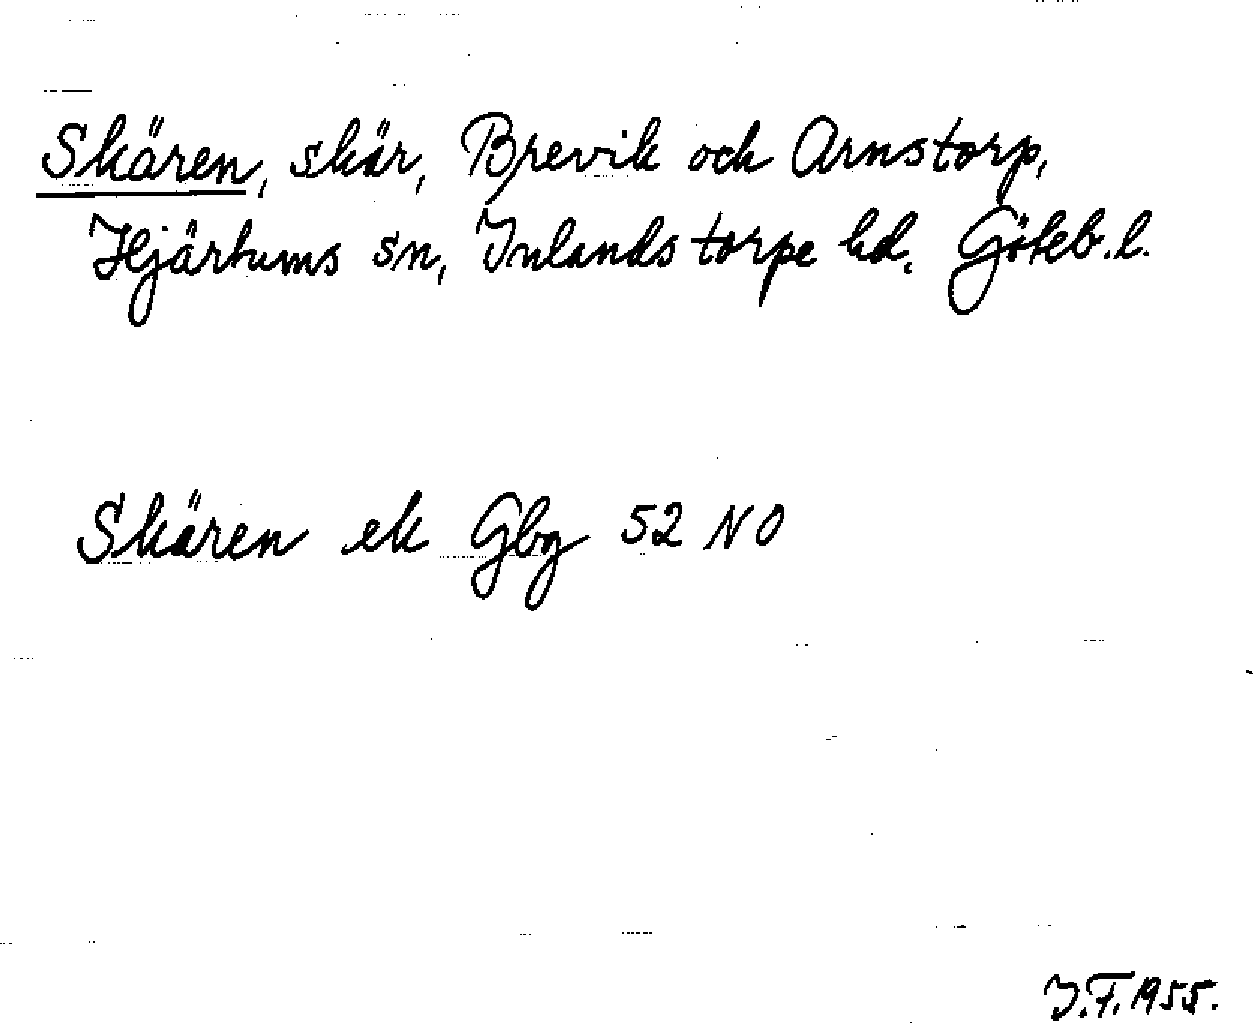 Skären, skär, Brevik och Arnstorp,
Hjärtums sn, Inlands torpe hd. Göteb. l.
Skären ek Gbg 52 NO
I.F. 1955.